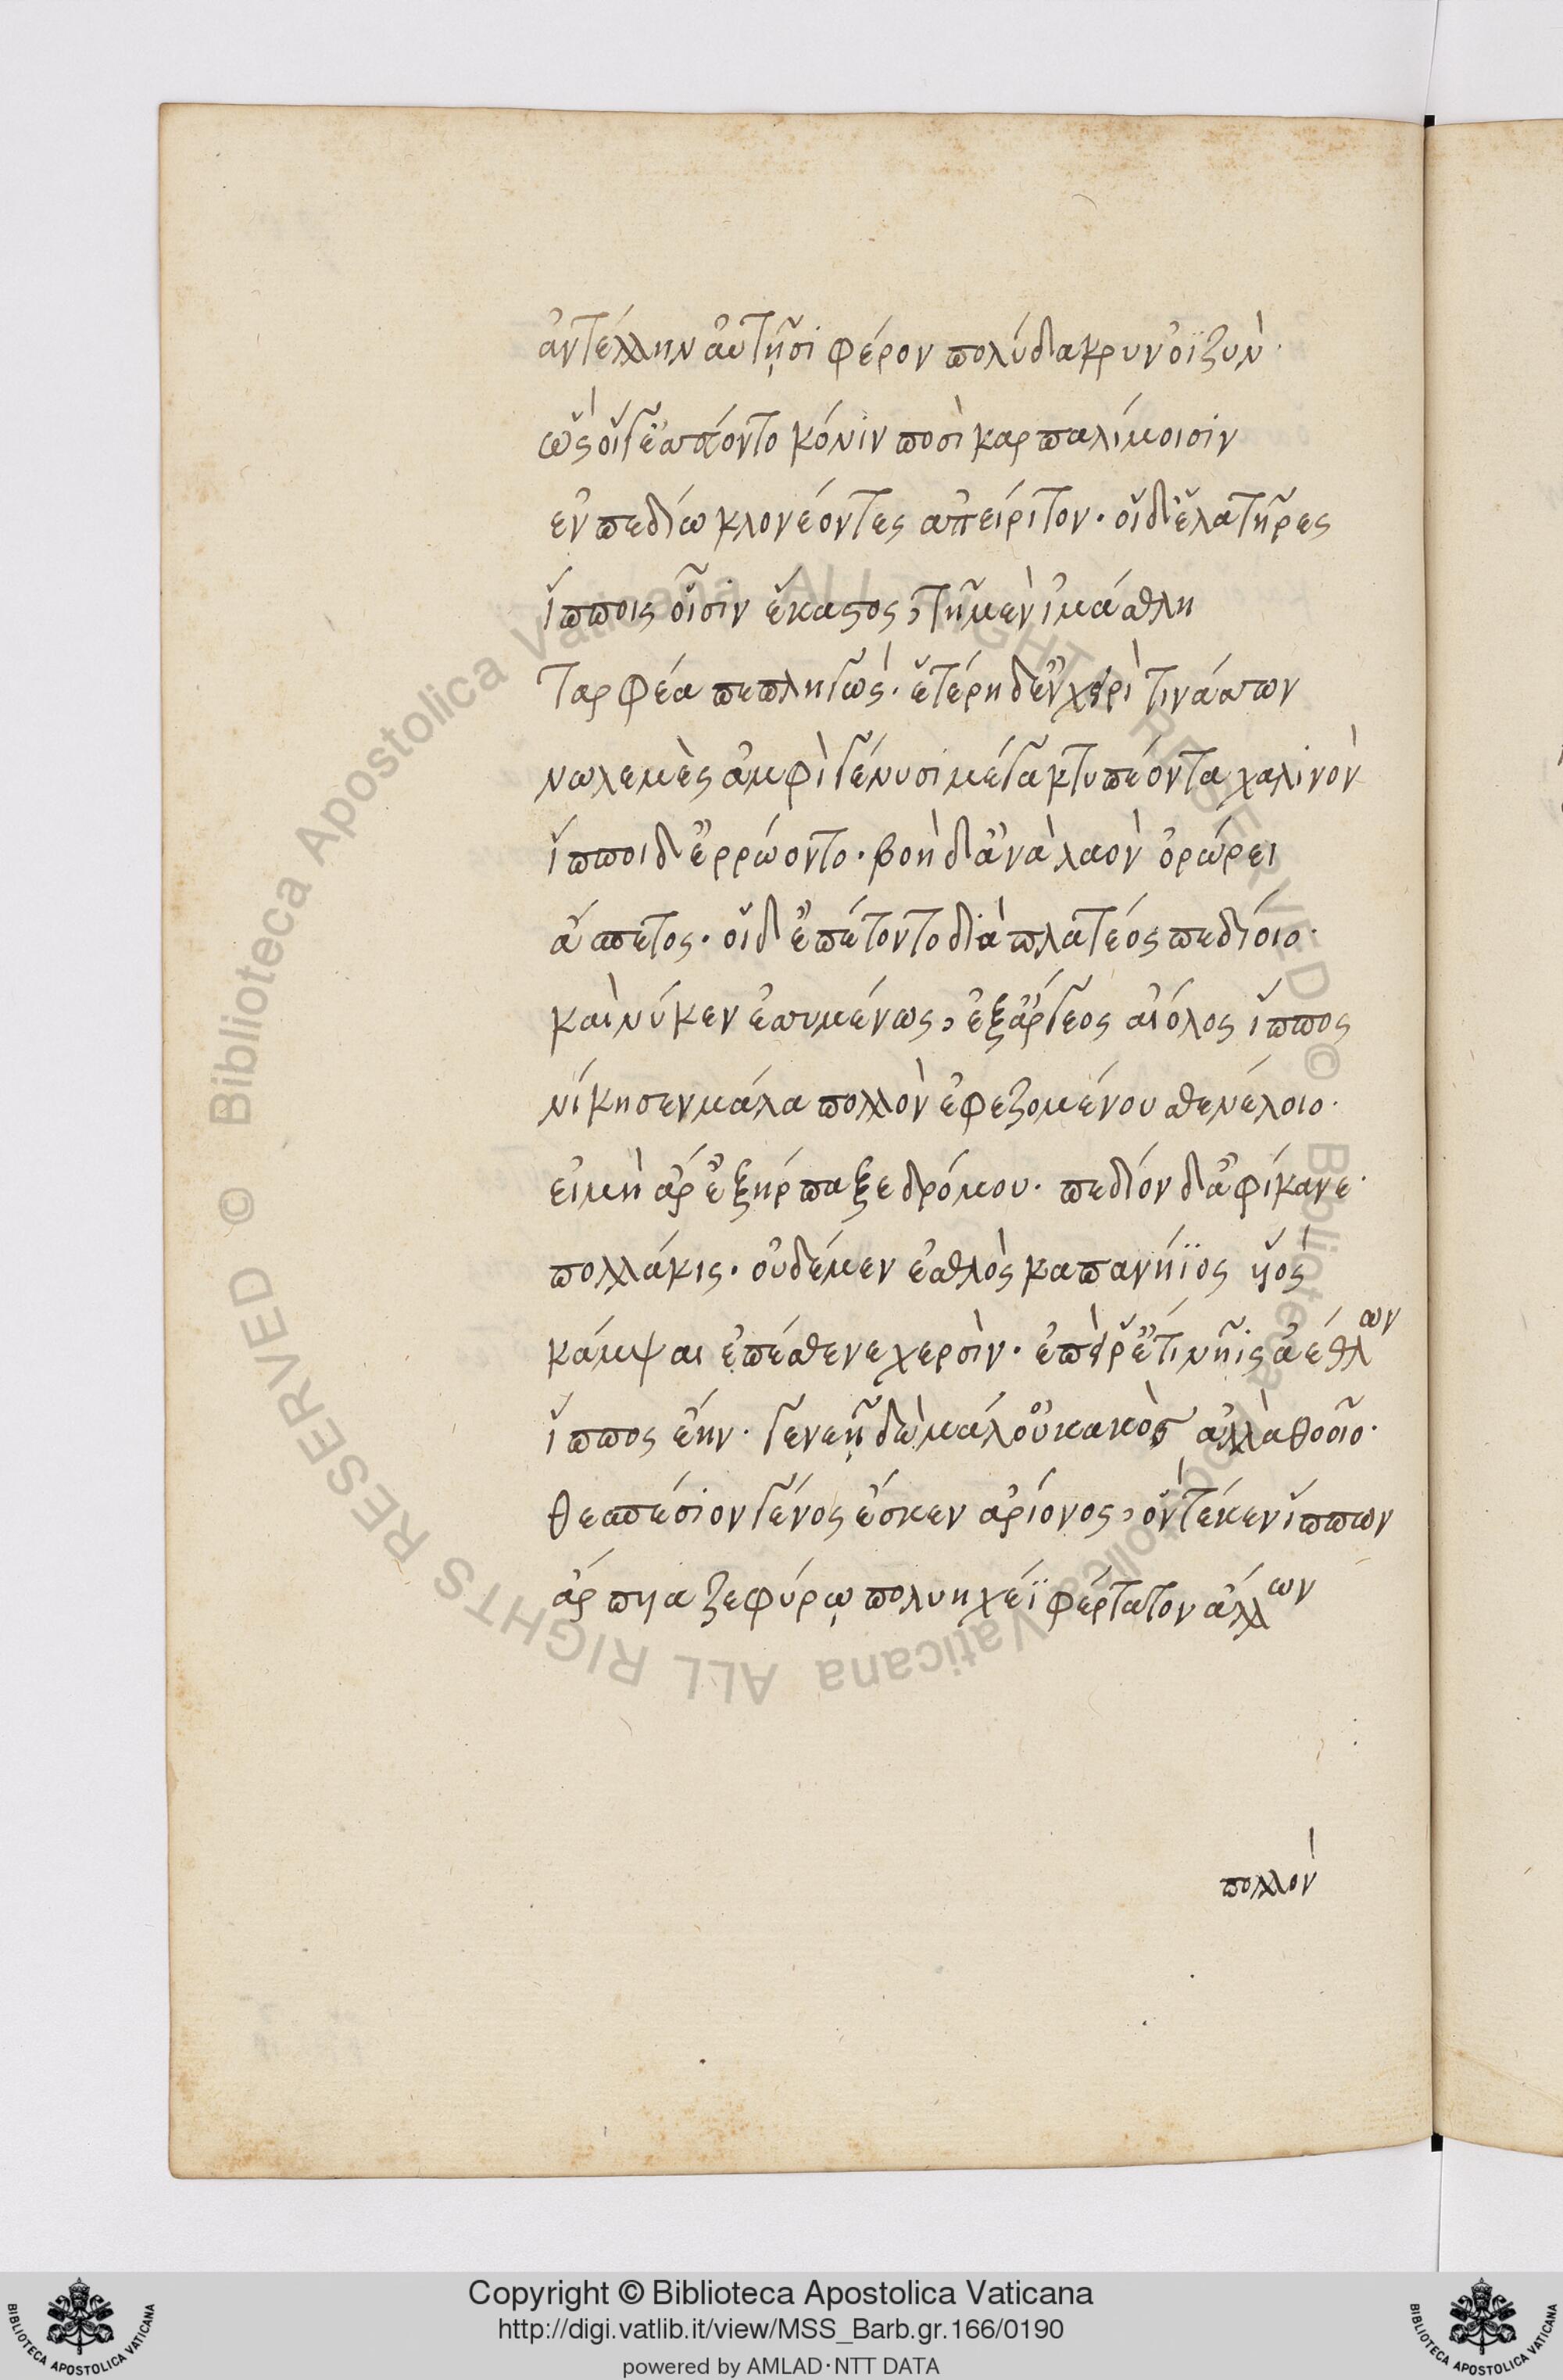 ἀντέλλην αὐτῆσι φέρον πολύδακρυν ὀϊζυν·
ὣς οἵγ' ἐσπόντο κόνιν ποσὶ καρπαλίμοισιν
ἐν πεδίω κλονέοντες ἀπείριτον· οἱ δ' ἐλατῆρες
ἵπποις οἷσιν ἕκαστος, τῆ μὲν ἱμάσθλη
ταρφέα πεπληγώς· ἑτέρη δ' ἐν χειρὶ τινάσσων
νωλεμὲς ἀμφὶ γένυσι μέγα κτυπέοντα χαλινὸν
ἵπποι δ' ἐρρώοντο· βοὴ δ' ἀνὰ λαὸν ὀρώρει
ἄσπετος· οἱ δ' ἐπέτοντο διὰ πλατέος πεδίοιο·
καὶ νύ κεν ἐσσυμένως, ἐξ ἄργεος αἰόλος ἵππος
νίκησεν μάλα πολλὸν ἐφεζομένου σθενέλοιο·
εἰ μὴ ἄρ ἐξήρπαξε δρόμου· πεδίον δ' ἀφίκανε·
πολλάκις· οὐδέ μεν ἐσθλὸς καπανήϊος υἱός
κάμψαι ἐπέσθενε χερσὶν· ἐπεὶ ῥ' ἔτι νῆϊς ἀέθλων
ἵππος ἔην· γενεῇ δὼ μάλ' οὐ κακὸς ἀλλὰ θοοῖο·
θεσπέσιον γένος ἔσκεν ἀρίονος, ὃν τέκεν ἵππων
ἅρπυια ζεφύρῳ πολυηχέϊ φέρτατον ἄλλων
πολλὸν
Copyright © Biblioteca Apostolica Vaticana
http://digi.vatlib.it/view/MSS_Barb.gr.166/0190
powered by AMLAD·NTT DATA